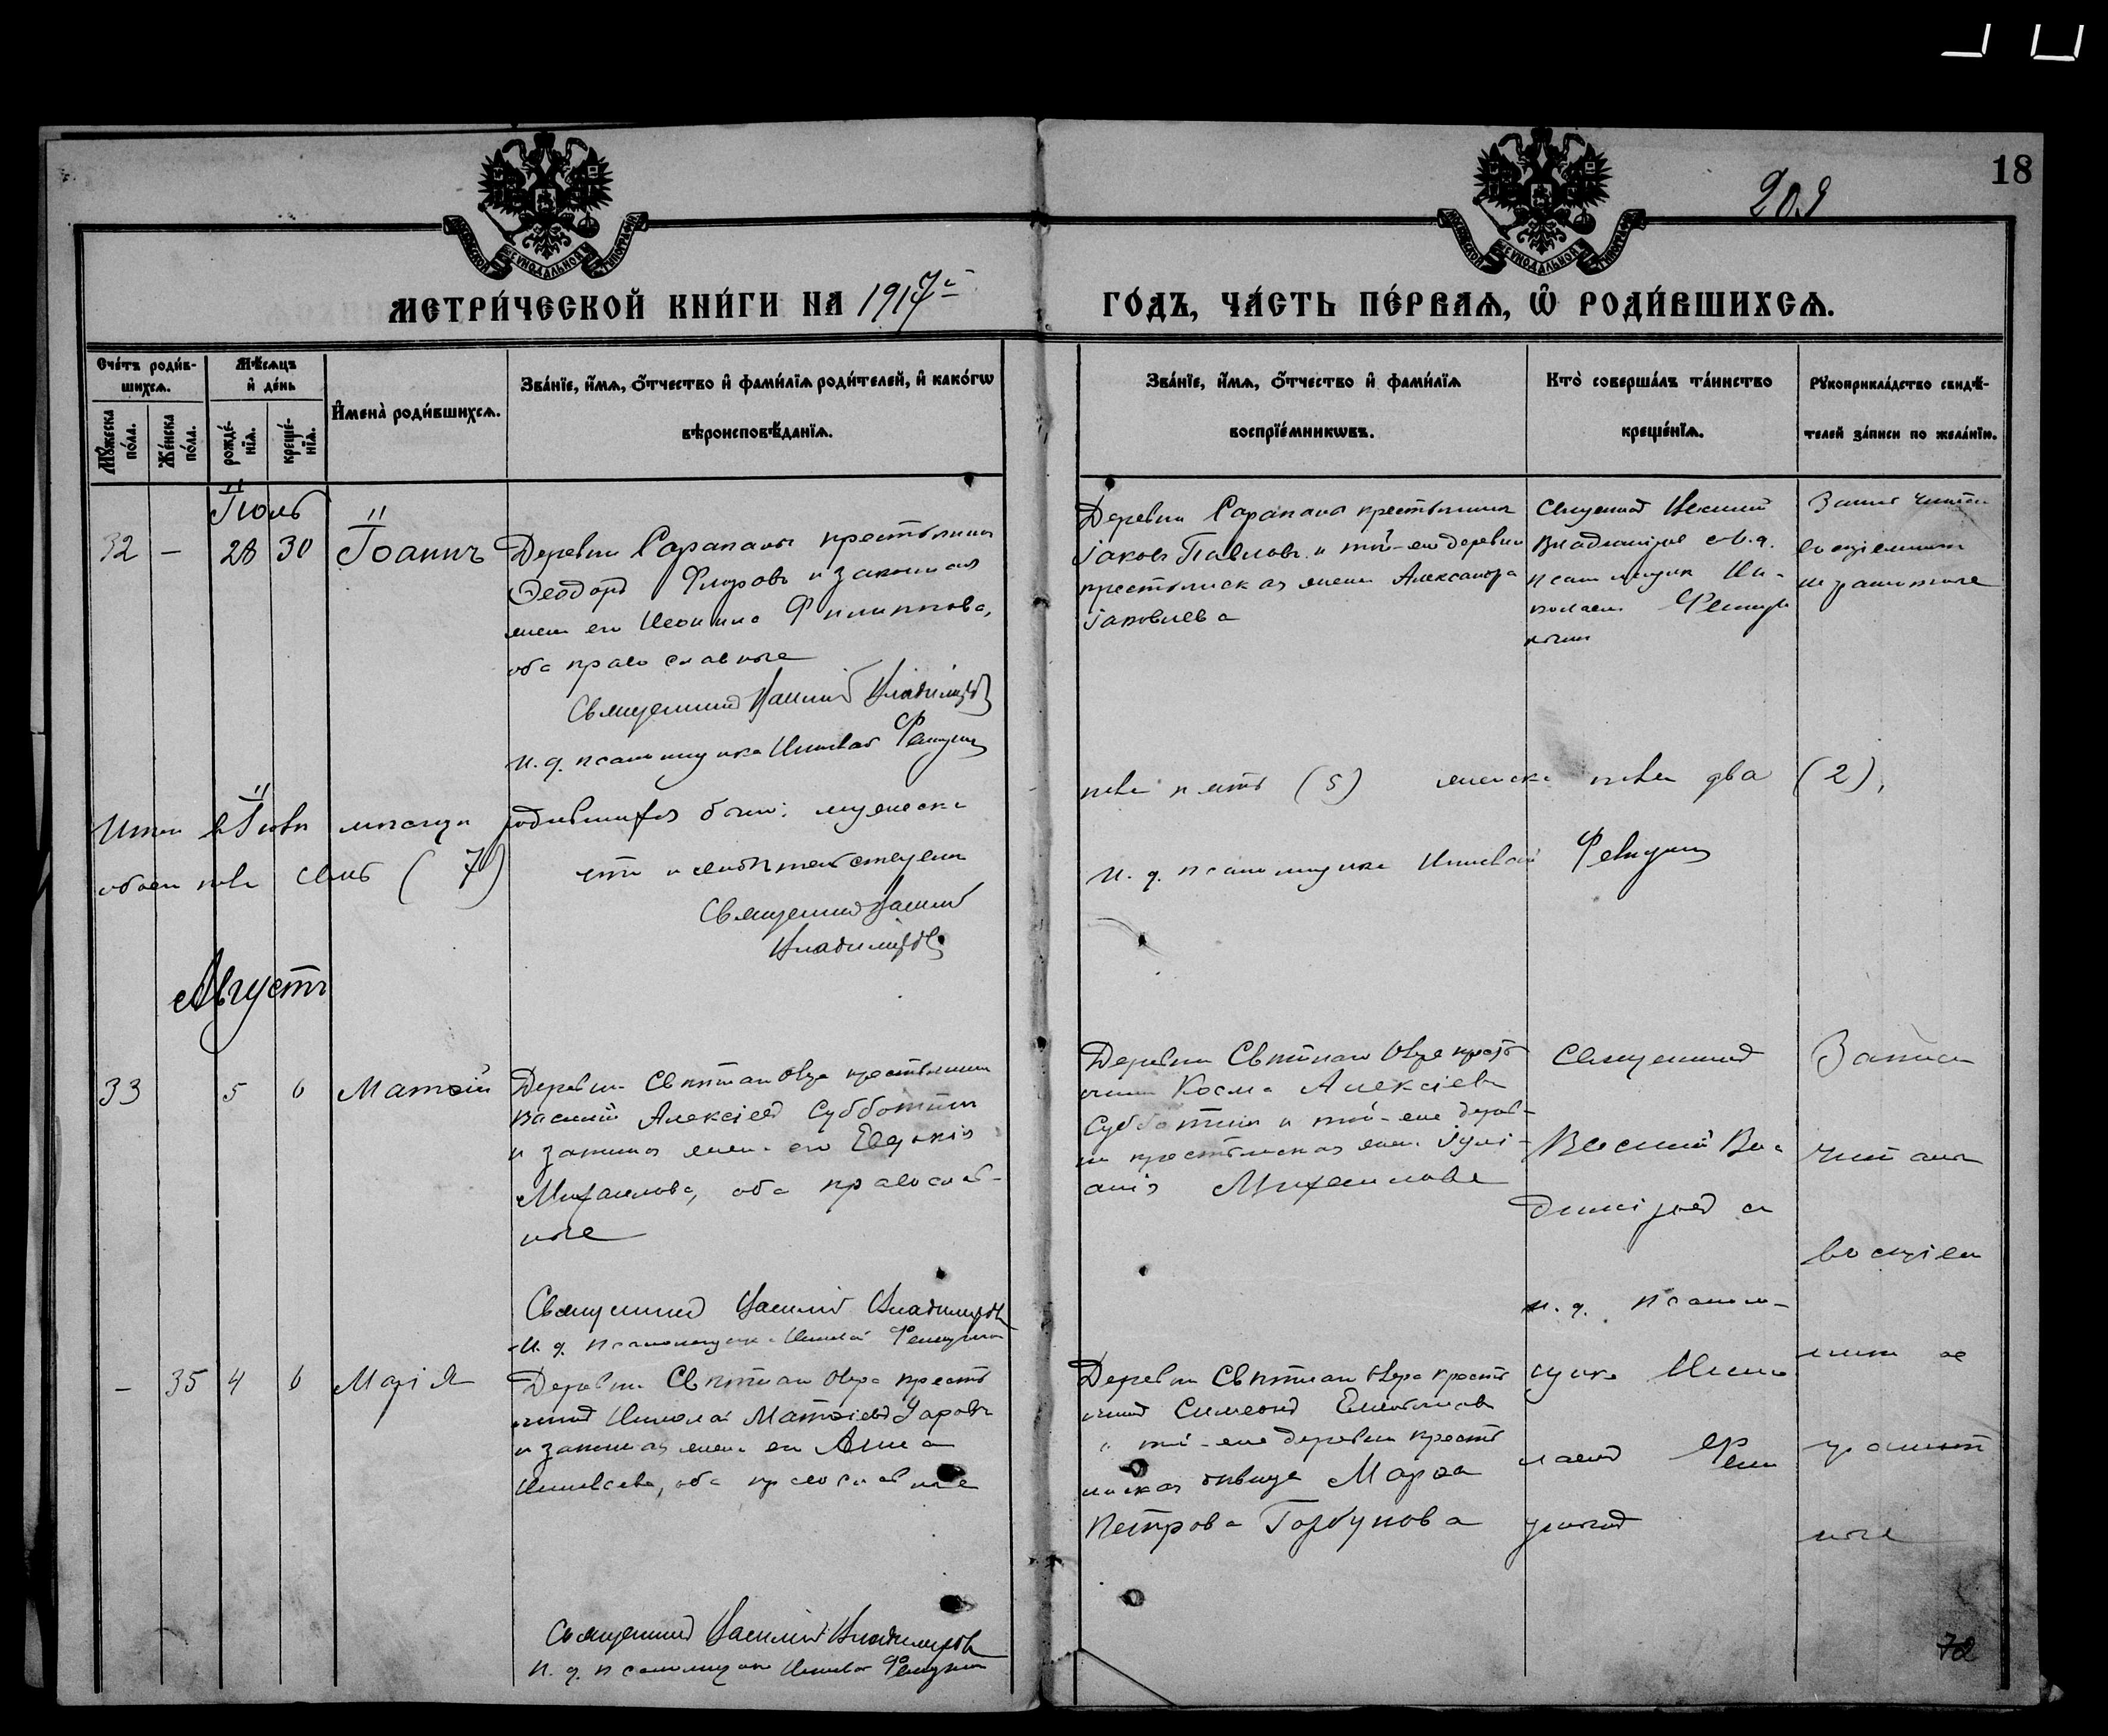 18
209
МЕТРИ́ЧЕСКОЙ КНИ́ГИ НА 1917й
ГО́ДЪ, ЧА́СТЬ ПЕ́РВАѦ, Ѡ҆ РОДИ́ВШИХСѦ.
Сче́тъ роди́в-
шихсѧ.
Мѣ́сѧцъ
и҆ де́нь
Мꙋ́жеска
по́ла.
Же́нска
по́ла.
рожде́-
нїѧ.
креще́-
нїѧ.
И҆мена̀ роди́вшихсѧ.
Зва́нїе, и҆́мѧ, ѻ҆́тчество и҆ фами́лїѧ роди́телей, и҆ како́гѡ
вѣроисповѣ́данїѧ.
Зва́нїе, и҆́мѧ, ѻ҆́тчество и҆ фами́лїѧ
воспрїе́мникѡвъ.
Кто̀ соверша́лъ та́инство
креще́нїѧ.
Рꙋкоприкла́дство свидѣ́-
телей за́писи по жела́нїю.
Іюль
32 – 28 30 Іоаннъ
Деревни Сарапаны крестьянинъ
Ѳеодоръ Флоровъ и законная
жена его Неонила Филиппова,
оба православные
Священникъ Василій Владиміровъ
И. д. псаломщика Николай
Деревни Сарапаны крестьянинъ
Іаковъ Павловъ и той-же деревни
крестьянская жена Александра
Іаковлева
Священникъ Василій
Владиміровъ с и. д.
псаломщика Ни-
колаемъ
Запис читан
воспріемник
неграмотные
Итого въ Іюлѣ мѣсяцѣ родившихся было: мужеска
пола пять (5) женска пола два (2),
обоего пола семь (7)
Священникъ Василій
Владиміровъ
И. д. псаломщика Николай
Августъ
33 5 6 Матѳій
Деревни крестьянинъ
Василій Алексіевъ Субботинъ
и законная жена его Евдокія
Михаилова, оба православ-
ные
Священникъ Василій Владиміровъ
И. д. псаломщика Николай
Деревни крестья
нинъ Косма Алексіевъ
Субботинъ и той-же дерев-
ни крестьянская жена Іулі-
анія Михаилова
Священникъ
Василій Вла
диміровъ с
и. д. псалом-
щика Нико
лаемъ
Запись
читана
воспріем
грамот
ные
– 35 4 6 Марія
Деревни крестья
нинъ Николай Матѳіевъ Уаровъ
и законная жена его Анна
Николаева, оба православные
Священникъ Василій Владиміровъ
И. д. псаломщика Николай
Деревни крестья
нинъ Симеонъ
и той-же деревни крестья
нская дѣвица Марѳа
Петрова Горбунова
72